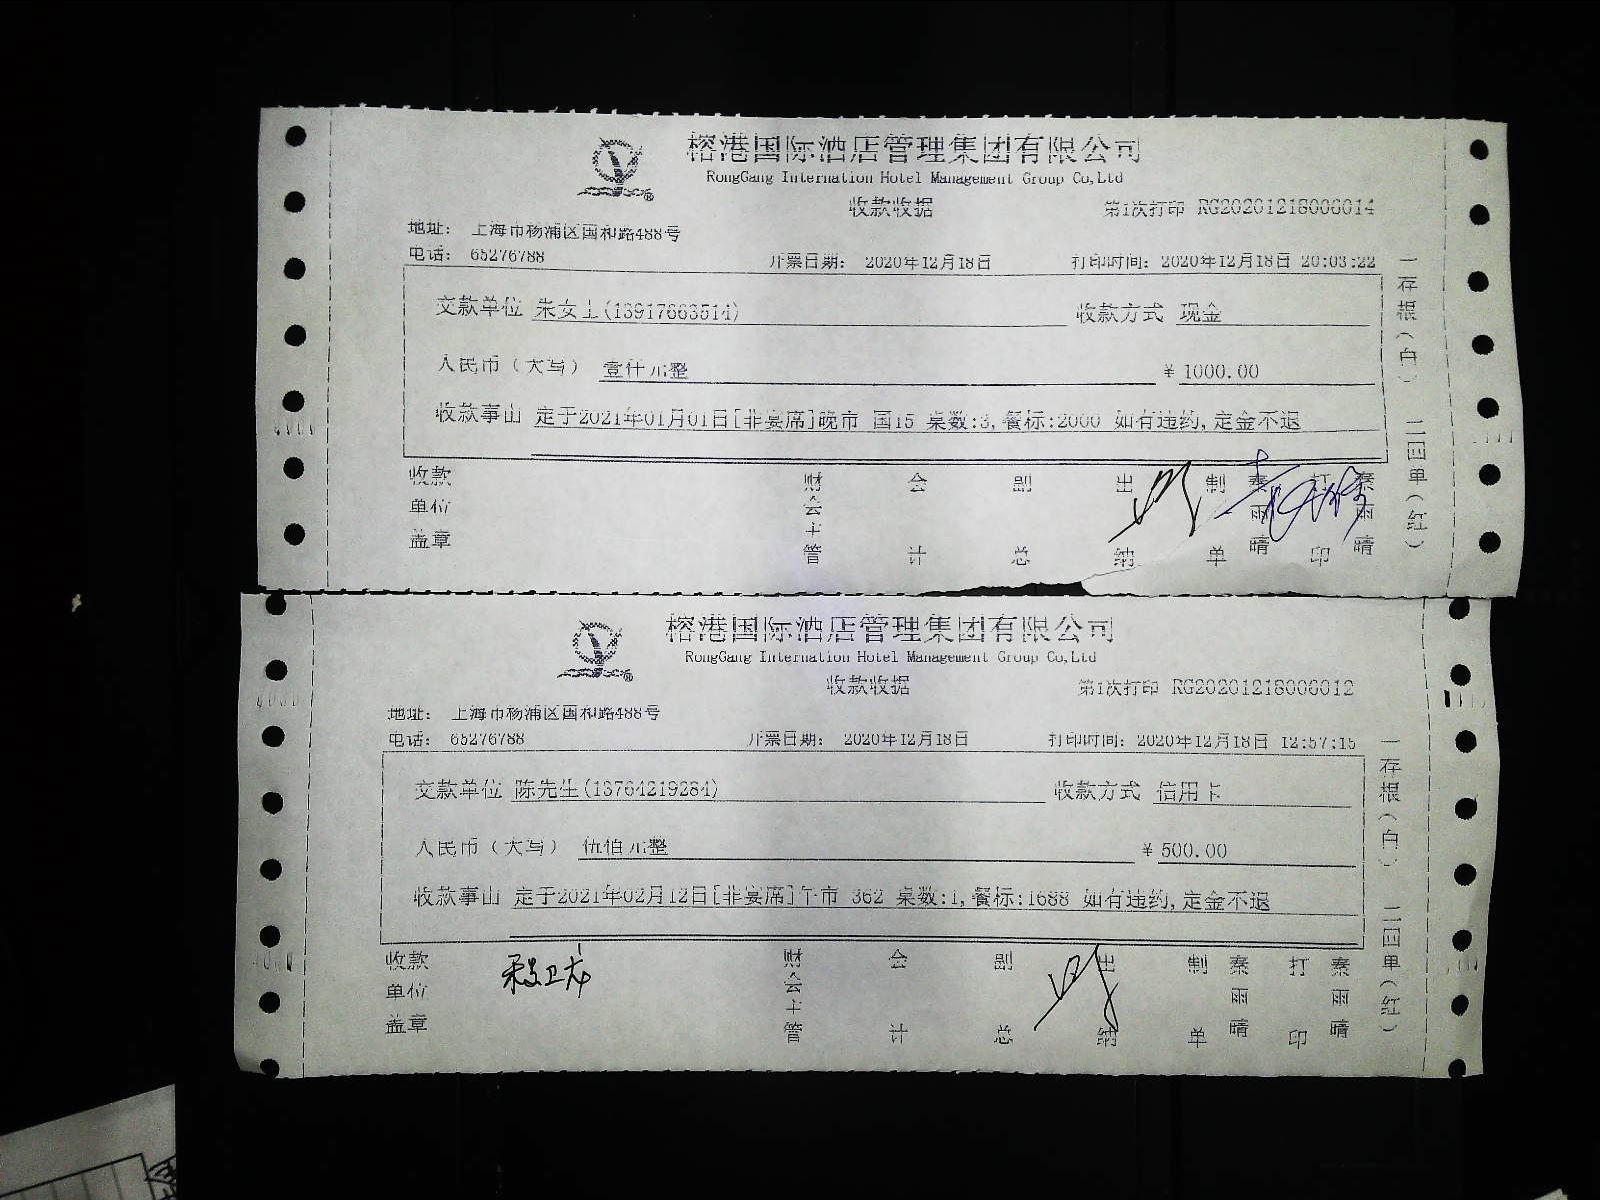 榕港国际酒店管理集团有限公司
RongGang Internation Hotel Management Group Co,Ltd
收款收据
第1次打印 RG20201218006014
地址： 上海市杨浦区国和路488号
电话： 65276788
开票日期： 2020年12月18日
打印时间：2020年12月18日 20:03:22
交款单位 朱女士(13917663514)
收款方式 现金
人民币（大写） 壹仟元整
¥ 1000.00
收款事由 定于2021年01月01日[非宴席]晚市 国15 桌数:3,餐标:2000 如有违约,定金不退
收款单位盖章
财会主管
会计
副总
出纳
制单 秦雨晴
打印 秦雨晴
一存根（白） 二四单（红）
榕港国际酒店管理集团有限公司
RongGang Internation Hotel Management Group Co,Ltd
收款收据
第1次打印 RG20201218006012
地址： 上海市杨浦区国和路488号
电话： 65276788
开票日期： 2020年12月18日
打印时间：2020年12月18日 12:57:15
交款单位 陈先生(13764219284)
收款方式 信用卡
人民币（大写） 伍佰元整
¥ 500.00
收款事由 定于2021年02月12日[非宴席]午市 362 桌数:1,餐标:1688 如有违约,定金不退
收款单位盖章
财会主管
会计
副总
出纳
制单 秦雨晴
打印 秦雨晴
一存根（白） 二四单（红）